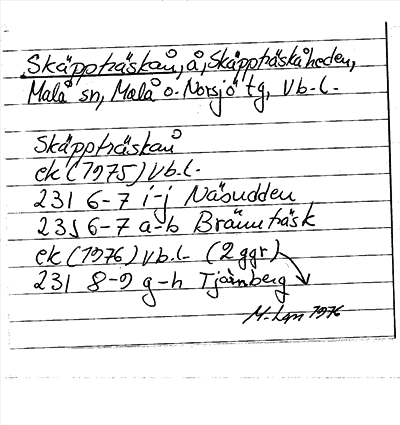 Skäppträskån, å, Skäppträskåheden,
Malå sn, Malå o. Norsjö tg, Vb.l.
Skäppträskån
ek (1975) Vb.l.
231 6-7 i-j Näsudden
23J 6-7 a-b Brännträsk
ek (1976) Vb.l. (2 ggr)
231 8-9 g-h Tjärnberg
1976